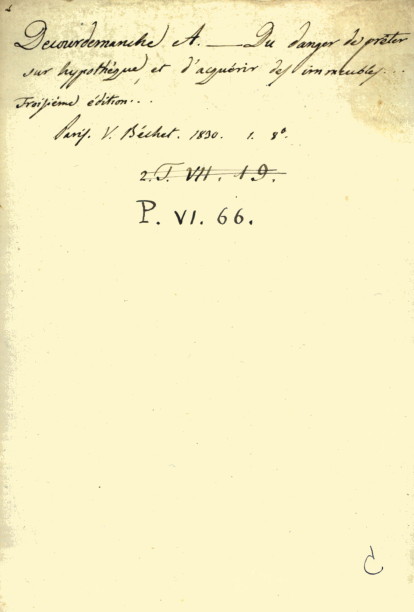 Decourdemanche A. — Du danger de prêter
sur hypothéque, et d'acquérir des immeubles...
Troisième édition...
Paris. V. Béchet. 1830. 1. 8º.
2. T. VII. 19.
P. VI. 66.